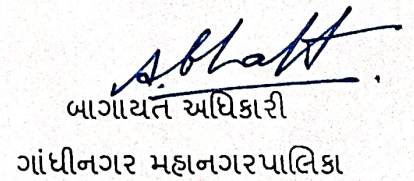 A.Bhatt
બાગાયત અધિકારી
ગાંધીનગર મહાનગરપાલિકા